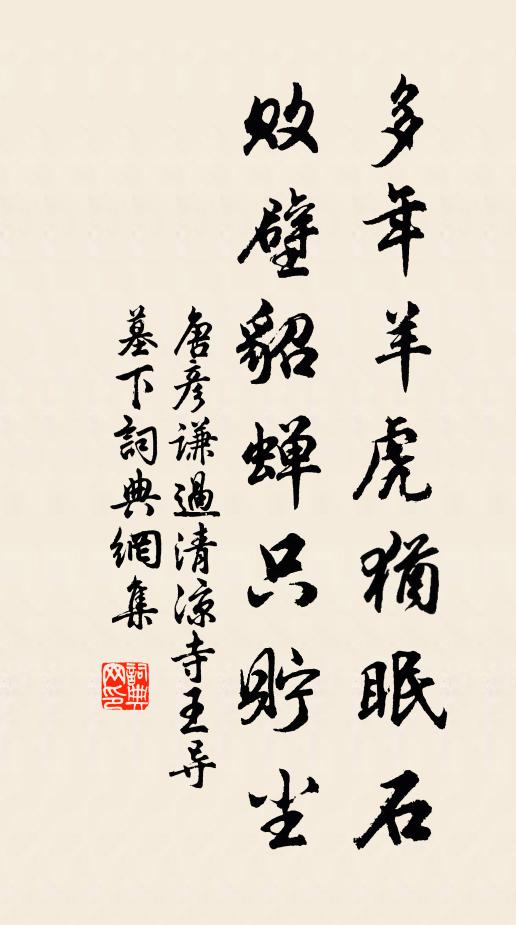 多年羊虎犹眠石
败壁貂蝉只贮尘
唐彦谦過清凉寺王导
墓下詞典網集
詞典网印